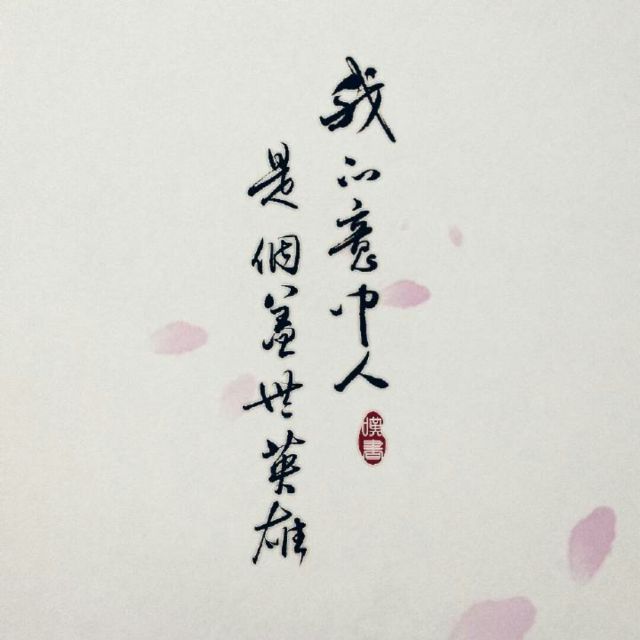 我的意中人
是個盖世英雄